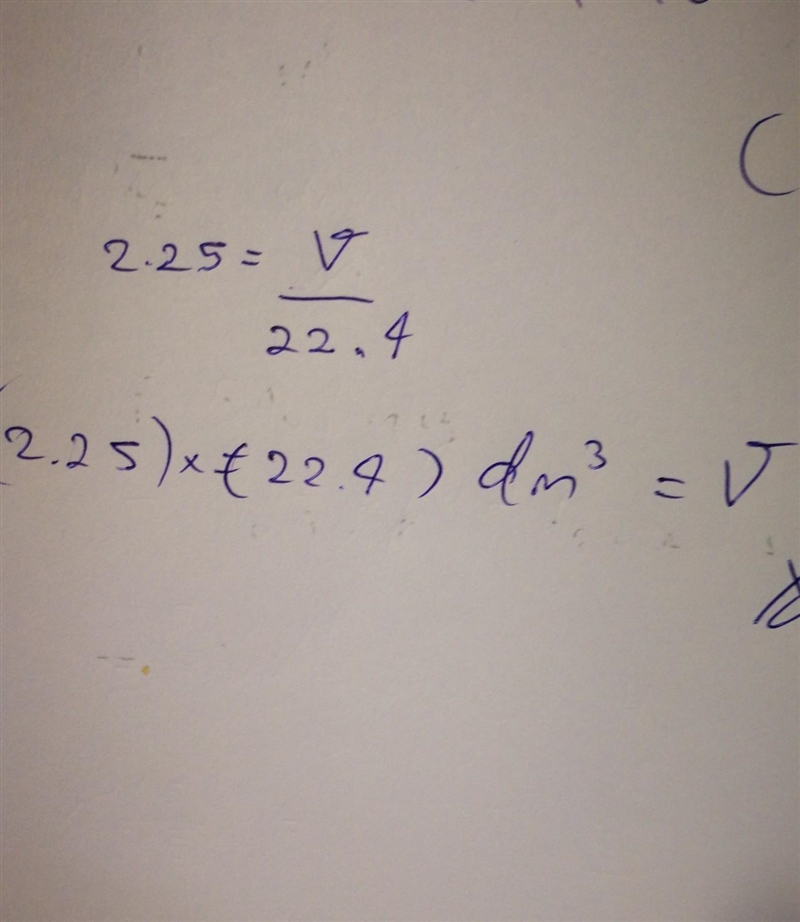 (
2.25 = V
22.4
(2.25) × (22.4) dm³ = V